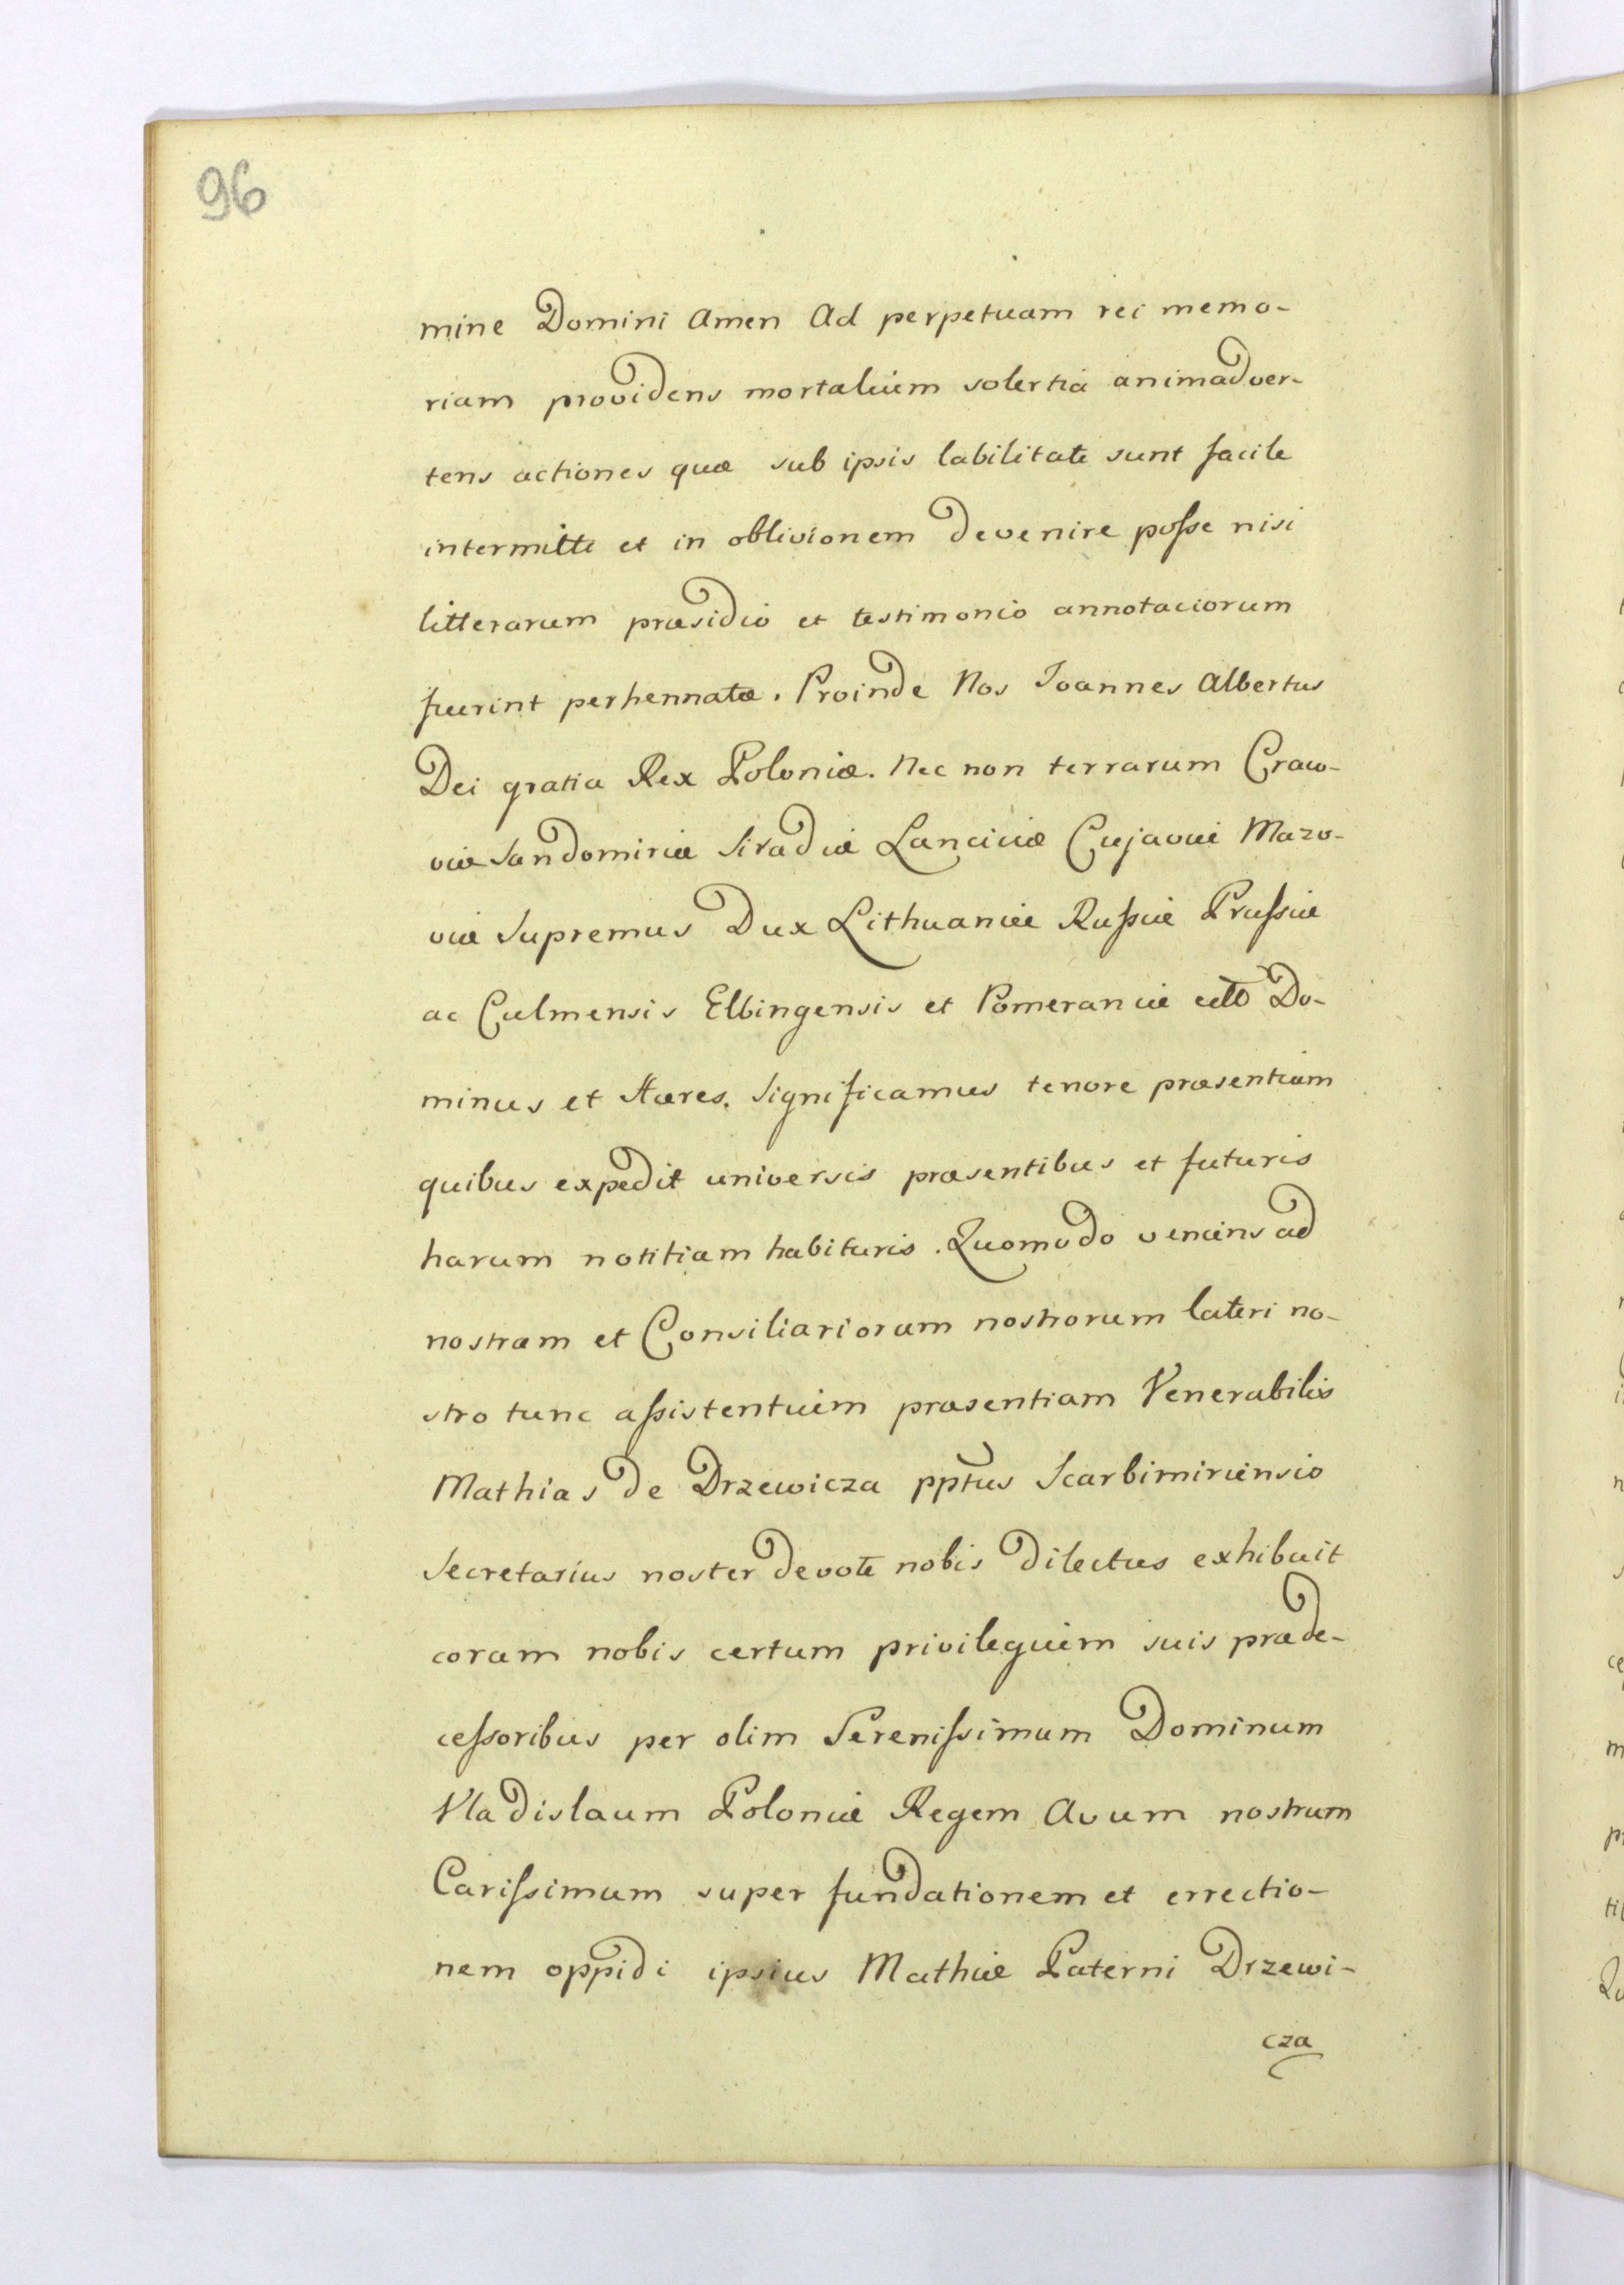 96
mine Domini Amen Ad perpetuam rei memo-
riam providens mortalium solertia animadver-
tens actiones quæ sub ipsis labilitate sunt facile
intermitti et in oblivionem devenire posse nisi
litterarum præsidio et testimonio annotaciorum
fuerint perhennatæ. Proinde Nos Joannes Albertus
Dei gratia Rex Poloniæ. Nec non terrarum Craco-
viæ Sandomiriæ Siradiæ Lanciciæ Cujaviæ Mazo-
viæ Supremus Dux Lithuaniæ Russiæ Prussiæ
ac Culmensis Elbingensis et Pomeraniæ Do-
minus et Hæres. Significamus tenore præsentium
quibus expedit universis præsentibus et futuris
harum notitiam habituris. Quomodo veniens ad
nostram et Consiliariorum nostrorum lateri no-
stro tunc assistentium præsentiam Venerabilis
Mathias de Drzewicza pptus Scarbimiriensis
Secretarius noster devote nobis dilectus exhibuit
coram nobis certum privilegium suis præde-
cessoribus per olim Serenissimum Dominum
Vladislaum Poloniæ Regem Avum nostrum
Carissimum super fundationem et errectio-
nem oppidi ipsius Mathiæ Paterni Drzewi-
cza